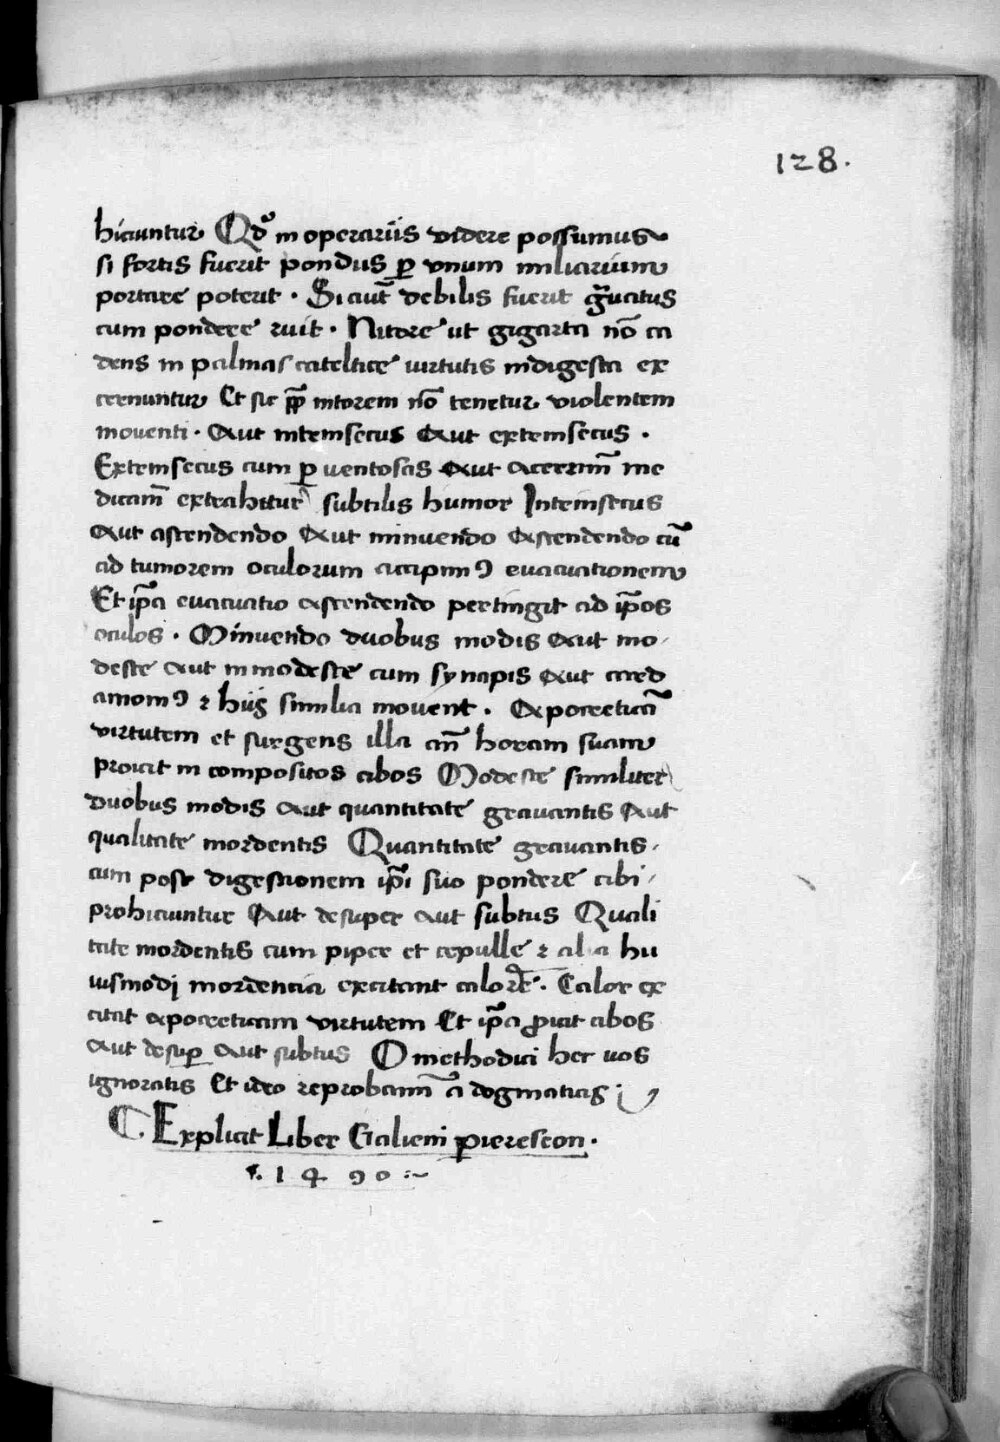 128.
hiciuntur Qdº in operariis videre possumus
si fortis fuerit pondus ꝑ unum miliarium
portare poterit · Si aut̄ debilis fuerit gͣuatus
cum pondere ruit · Nitore ut gigarta nō ca
dens in palmas cateltice virtutis indigesta ex
cernuntur Et sic intorem nō tenetur violentem
moventi · Aut intrinsecus Aut extrinsecus ·
Extrinsecus cum ꝑ ventosas Aut acerrim̄ me
dicam̄ extrahitur subtilis humor Intrinsecus
Aut ascendendo Aut minuendo Ascendendo cū
ad tumorem oculorum accipimꝰ evacuationem
Et ip̄a evacuatio ascendendo pertingit ad ip̄os
oculos · Minuendo duobus modis Aut mo-
deste aut inmodeste cum synapis Aut card
amomꝰ ⁊ hiis similia movent · Apocretica͞
virtutem et surgens illa an̄ horam suam
proicit in compositos cibos Modeste similiter
duobus modis aut quantitate gravantis Aut
qualitate mordentis Quantitate gravantis ·
cum post digestionem ip̄i suo pondere cibi -
prohiciuntur Aut desuper aut subtus Quali
tate mordentis cum piper et cepulle ⁊ alia hu
iusmodj mordencia excitant calorē · Calor ex
citat apocreticam virtutem Et ip̄a ꝓicit cibos
Aut desuꝑ Aut subtus O methodici hec vos
ignoratis Et ideo reprobam̄ a dogmaticis
Explicit Liber Galieni piereseon ·
· 1490 ·